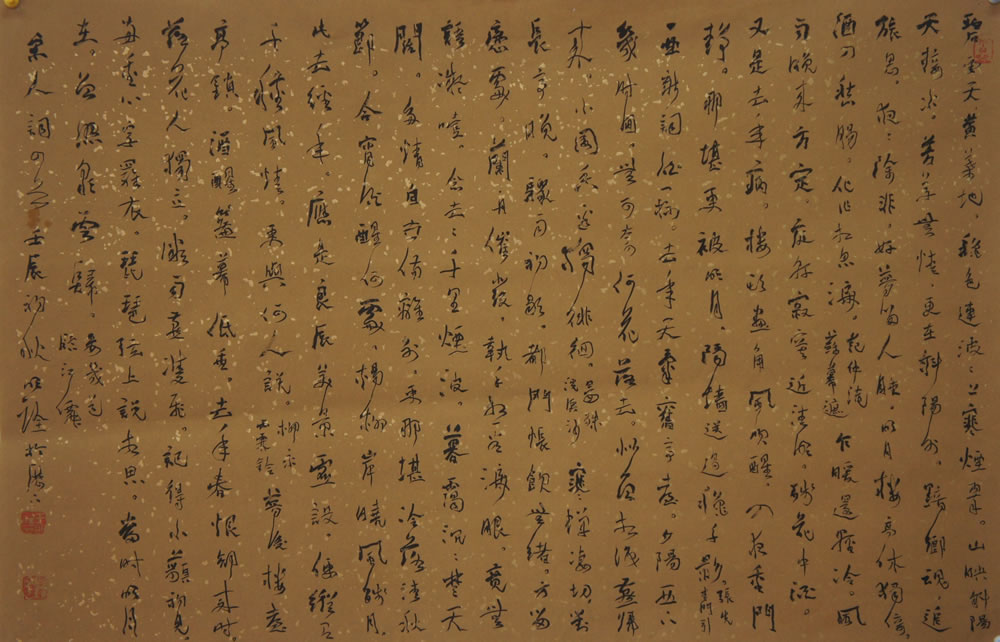 碧雲天黄葉地。秋色連波波上寒煙翠。山映斜陽
天接水。芳草無情，更在斜陽外。黯鄉魂追
旅思。夜夜除非，好夢留人睡。明月樓高休獨倚
酒入愁腸。化作相思淚。范仲淹蘇幕遮 乍暖還輕冷。風
雨晚來方定。庭軒寂寞近清明。殘花中酒。
又是去年病。樓頭畫角風吹醒。入夜重門
靜。那堪更被明月。隔牆送過鞦千影。張先青門引
一曲新詞酒一杯。去年天氣舊亭臺。夕陽西下
幾時回。無可奈何花落去。似曾相識燕歸
來。小園香徑獨徘徊。晏殊浣溪沙 寒蟬淒切。對
長亭晚。驟雨初歇。都門帳飲無緒。方留
戀處。蘭舟催發。執手相看淚眼。竟無
語凝噎。念去去千里煙波。暮靄沉沉楚天
闊。多情自古傷離別。更那堪冷落清秋
節。今宵酒醒何處。楊柳岸曉風殘月。
此去經年。應是良辰美景虛設。便縱有
千種風情。更與何人說。柳永雨霖鈴 夢後樓臺
高鎖。酒醒簾幕低垂。去年春恨卻來時。
落花人獨立。微雨燕雙飛。記得小蘋初見。
兩重心字羅衣。琵琶弦上說相思。當時明月
在。曾照彩雲歸。晏幾道臨江仙
宋人詞 壬辰初秋 於歷下